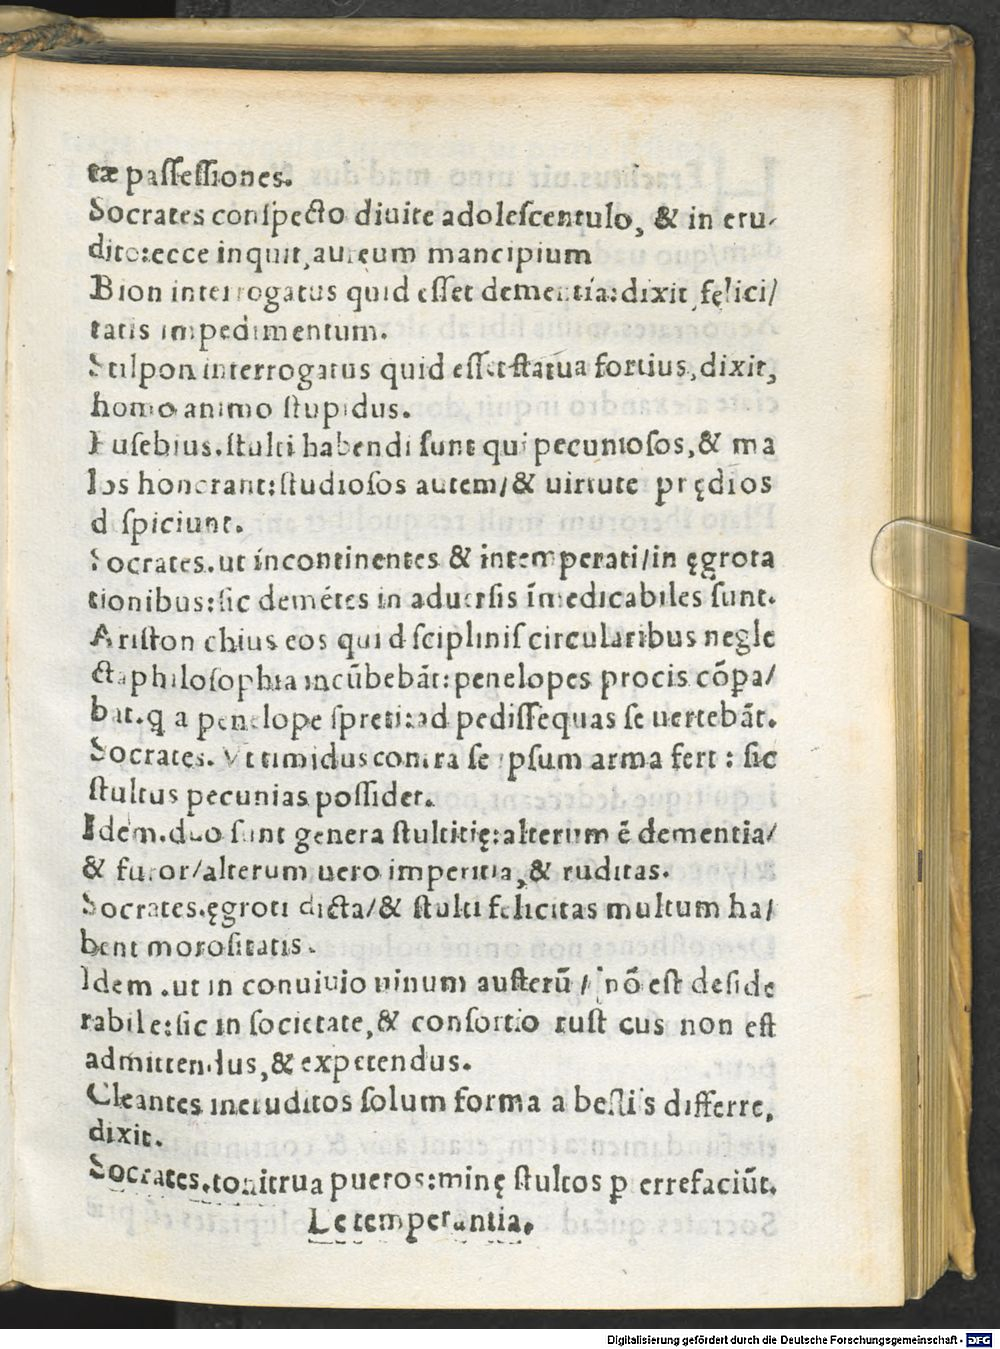 tæ passessiones.
Socrates conspecto diuite adolescentulo, & in eru-
dito:ecce inquit, aureum mancipium
Bion interrogatus quid esset dementia:dixit felici/
tatis impedimentum.
Stilpon interrogatus quid esset statua fortius, dixit,
homo animo stupidus.
Eusebius. stulti habendi sunt qui pecuniosos, & ma
los honorant: studiosos autem/& uirtute prędios
d spiciunt.
Socrates. ut incontinentes & intemperati/in ęgrota
tionibus: sic demẽtes in aduersis ĩmedicabiles sunt.
Ariston chius eos qui d sciplinis circularibus negle
cta philosophia incũbebãt: penelopes procis cõpa/
bat. q a penelope spreti: ad pedissequas se uertebãt.
Socrates. Vt timidus contra se ipsum arma fert: sic
stultus pecunias possidet.
Idem. duo sunt genera stultitię: alterum ẽ dementia/
& furor/alterum uero imperitia, & ruditas.
Socrates. ęgroti dicta/& stulti felicitas multum ha/
bent morositatis.
Idem . ut in conuiuio uinum austerũ / nõ est deside
rabile: sic in societate, & consortio rust cus non est
admittendus, & expetendus.
Cleantes ineruditos solum forma a bestiis differre,
dixit.
Socrates. tonitrua pueros: minę stultos p errefaciũt.
De temperantia.
Digitalisierung gefördert durch die Deutsche Forschungsgemeinschaft - DFG